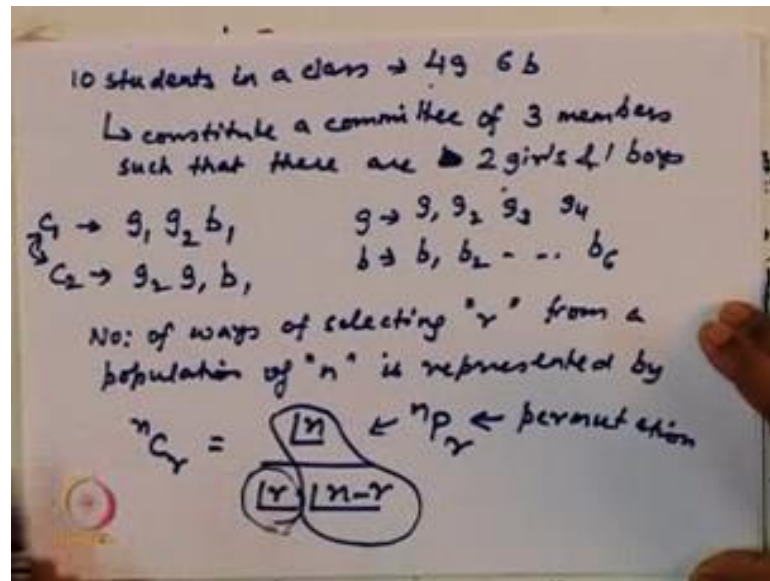 10 students in a class → 4g 6b
↳ constitute a committee of 3 members
such that there are 2 girls & 1 boys
C1 → g1 g2 b1
g → g1 g2 g3 g4
C2 → g2 g1 b1
b → b1 b2 - - .. b6
No: of ways of selecting "r" from a
population of "n" is represented by
nCr = ⌊n / ⌊r ⌊n-r ← nPr ← permutation